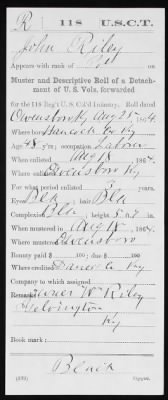 R | 118 | U.S.C.T.
John Riley
Appears with rank of Pvt on
Muster and Descriptive Roll of a Detach-
ment of U. S. Vols. forwarded
for the 118 Reg't U. S. C'd Infantry. Roll dated
Owensboro Ky Aug 25, 1864.
Where born Hancock Co Ky
Age 18 y'rs; occupation Laborer
When enlisted Aug 18, 1864.
Where enlisted Owensboro Ky
For what period enlisted 3 years.
Eyes Blk; hair Blk
Complexion Blk; height 5 ft. 7 in.
When mustered in Aug 18, 1864.
Where mustered in Owensboro
Bounty paid $ 100; due $ 100
Where credited Hancock Co Ky
Company to which assigned
Remarks: Owner Wm Riley
Ky
Book mark:
Black
(339) Copyist.